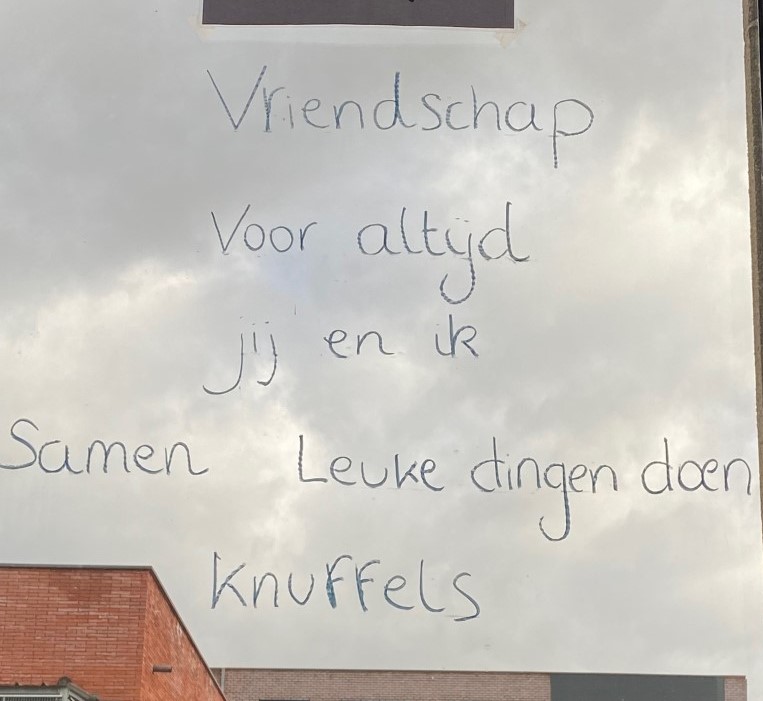 Vriendschap
Voor altijd
jij en ik
Samen Leuke dingen doen
Knuffels